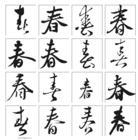 春 春 春 春
春 春 春 春
春 春 春 春
春 春 春 春